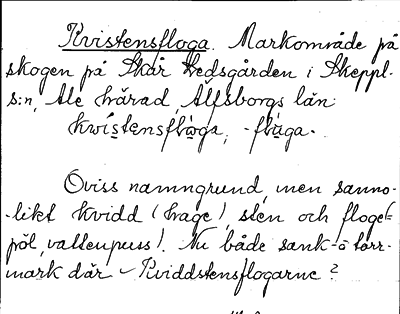 Kvistensfloga. Markområde på
skogen på Skår Nedsgården i Skeppl-
s:n, Ale härad, Älfsborgs län.
kwistensflωga, -flωga.
Oviss namngrund, men sanno-
-likt kvidd (hage), sten och floge(=
pöl, vattenpuss). Nu både sank- o torr-
mark där - Kviddstensflogarne?